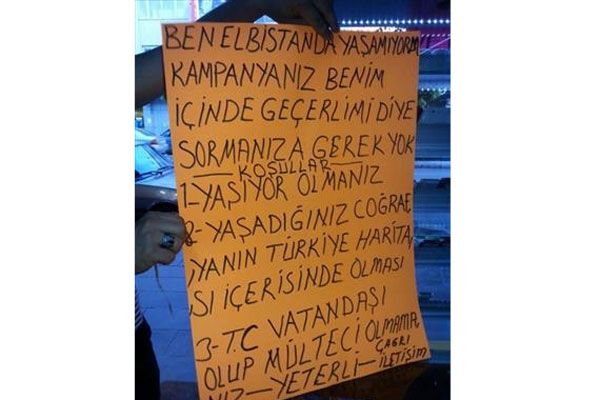 BEN ELBİSTANDA YAŞAMIYORM
KAMPANYANIZ BENİM
İÇİNDE GEÇERLİMİ DİYE
SORMANIZA GEREK YOK
— KOŞULLAR —
1-YAŞIYOR OLMANIZ
2-YAŞADIĞINIZ COĞRAF
YANIN TÜRKİYE HARİTA
SI İÇERİSİNDE OLMASI
3-T.C VATANDAŞI
OLUP MÜLTECİ OLMAMA
NIZ—YETERLİ—
ÇAĞRI
İLETİŞİM